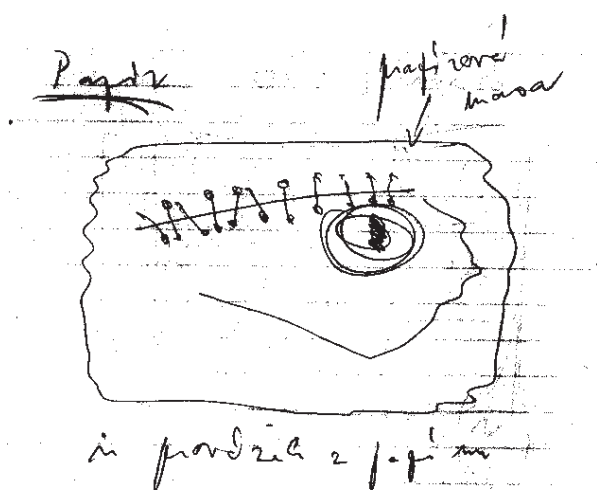 Papír
papírová
masa
provázek z papíru